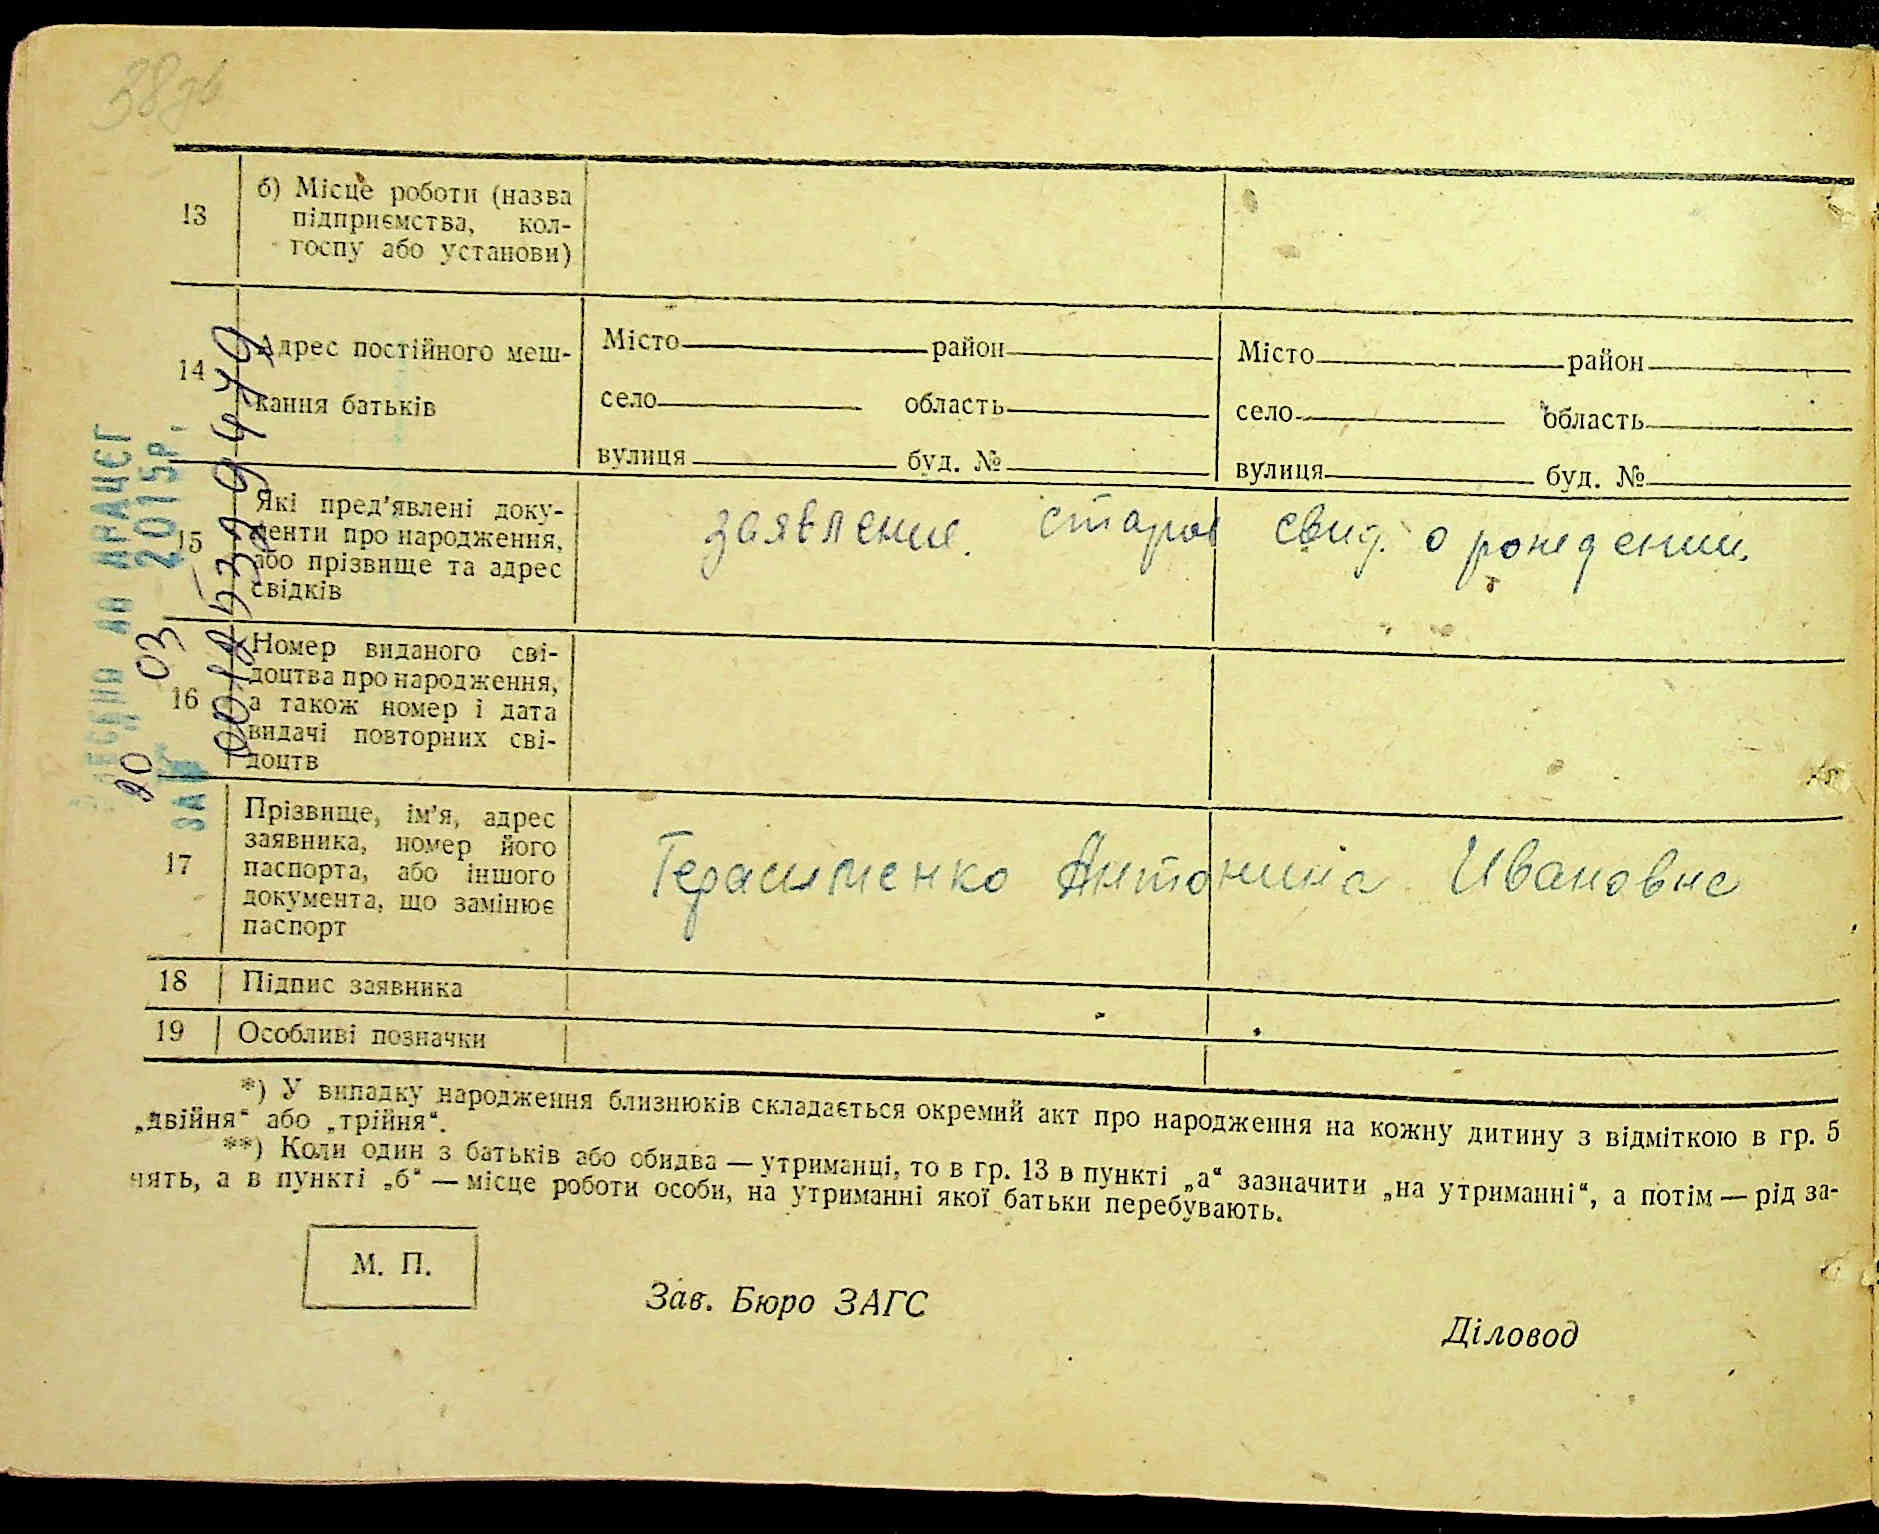 38зв
13
б) Місце роботи (назва
підприємства, кол-
госпу або установи)
14
Адрес постійного меш-
кання батьків
Місто район
село область
вулиця буд. №
Місто район
село область
вулиця буд. №
15
Які пред’явлені доку-
менти про народження,
або прізвище та адрес
свідків
заявление. старое свид. о рождении.
16
Номер виданого сві-
доцтва про народження,
а також номер і дата
видачі повторних сві-
доцтв
17
Прізвище, ім’я, адрес
заявника, номер його
паспорта, або іншого
документа, що замінює
паспорт
Герасименко Антонина Ивановна
18 Підпис заявника
19 Особливі позначки
*) У випадку народження близнюків складається окремий акт про народження на кожну дитину з відміткою в гр. 5
„двійня“ або „трійня“.
**) Коли один з батьків або обидва — утриманці, то в гр. 13 в пункті „а“ зазначити „на утриманні“, а потім — рід за-
нять, а в пункті „б“ — місце роботи особи, на утриманні якої батьки перебувають.
М. П.
Зав. Бюро ЗАГС
Діловод
ДРАЦСГ
20 03 2015р.